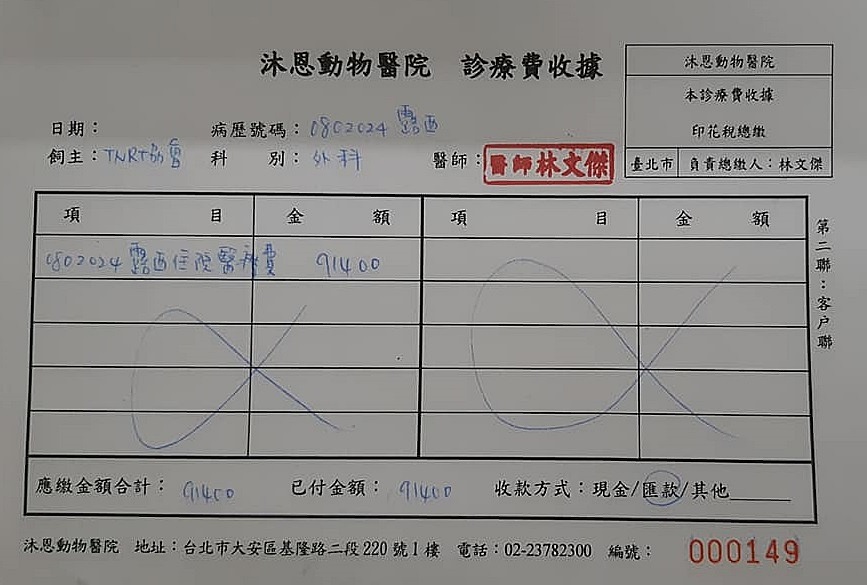 沐恩動物醫院 診療費收據
沐恩動物醫院
本診療費收據
印花稅總繳
臺北市 負責總繳人：林文傑
日期： 病歷號碼：0802024 露西
飼主：TNRT協會 科 別：外科 醫師：醫師林文傑
項 目 金 額 項 目 金 額
0802024 露西住院醫療費 91400
應繳金額合計：91400 已付金額：91400 收款方式：現金/匯款/其他______
第二聯：客戶聯
沐恩動物醫院 地址：台北市大安區基隆路二段220號1樓 電話：02-23782300 編號：000149